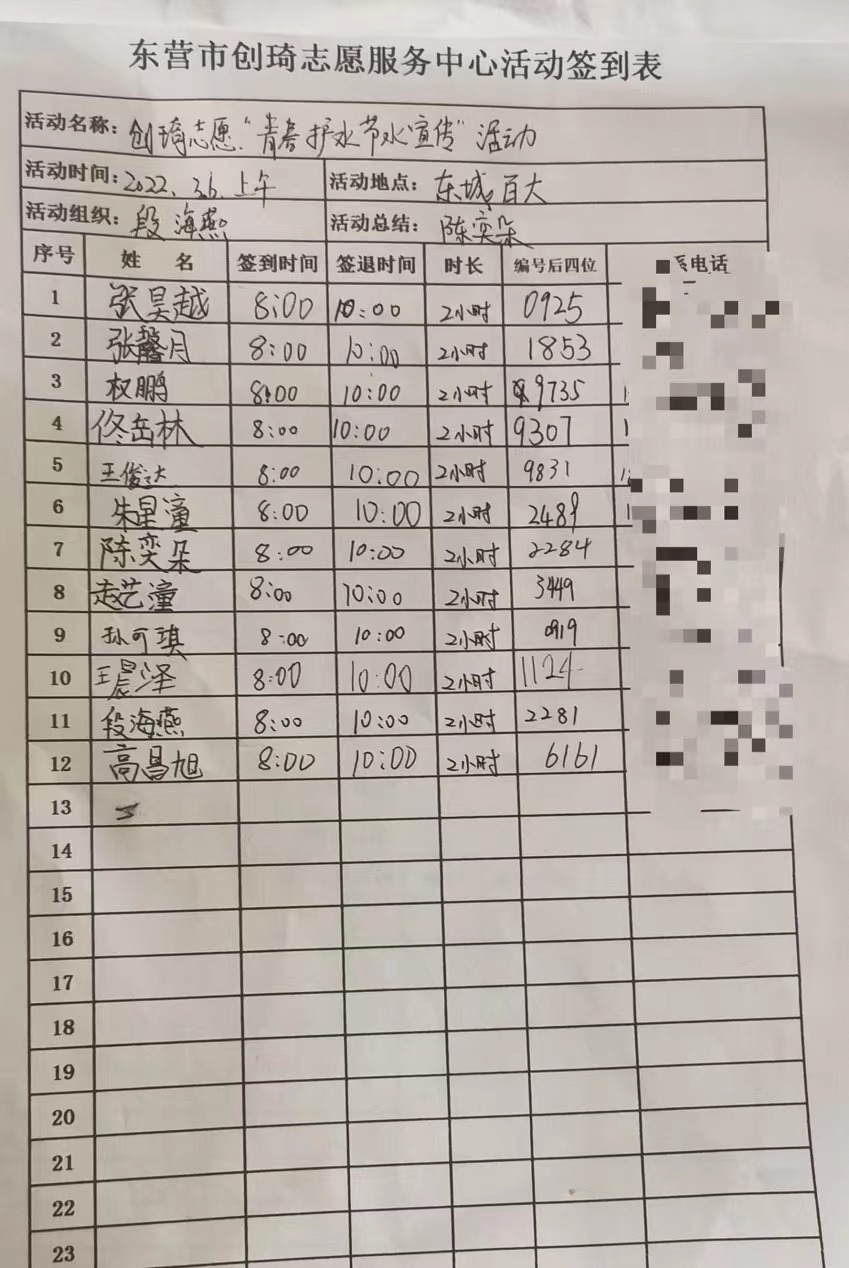 东营市创琦志愿服务中心活动签到表
活动名称：创琦志愿“青春护水节水宣传”活动
活动时间：2022、3.6.上午 活动地点：东城百大
活动组织：段海燕 活动总结：陈奕朵
序号 姓名 签到时间 签退时间 时长 编号后四位 系电话
1 张昊越 8:00 10:00 2小时 0925
2 张馨月 8:00 10:00 2小时 1853
3 权鹏 8:00 10:00 2小时 9735
4 佟岳林 8:00 10:00 2小时 9307
5 王俊达 8:00 10:00 2小时 9831
6 朱星潼 8:00 10:00 2小时 2489
7 陈奕朵 8:00 10:00 2小时 2284
8 赵艺潼 8:00 10:00 2小时 3449
9 孙可琪 8:00 10:00 2小时 0919
10 王晨泽 8:00 10:00 2小时 1124
11 段海燕 8:00 10:00 2小时 2281
12 高昌旭 8:00 10:00 2小时 6161
13
14
15
16
17
18
19
20
21
22
23